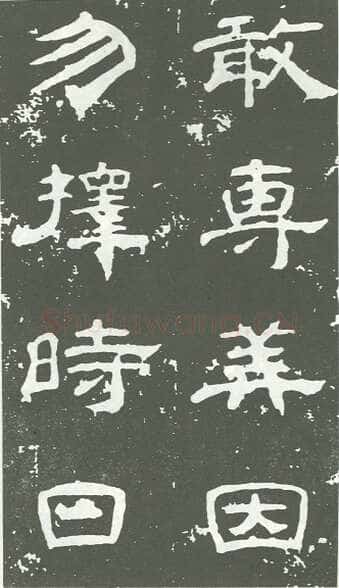 敢專美因
勿擇時日
Shufawang.cn